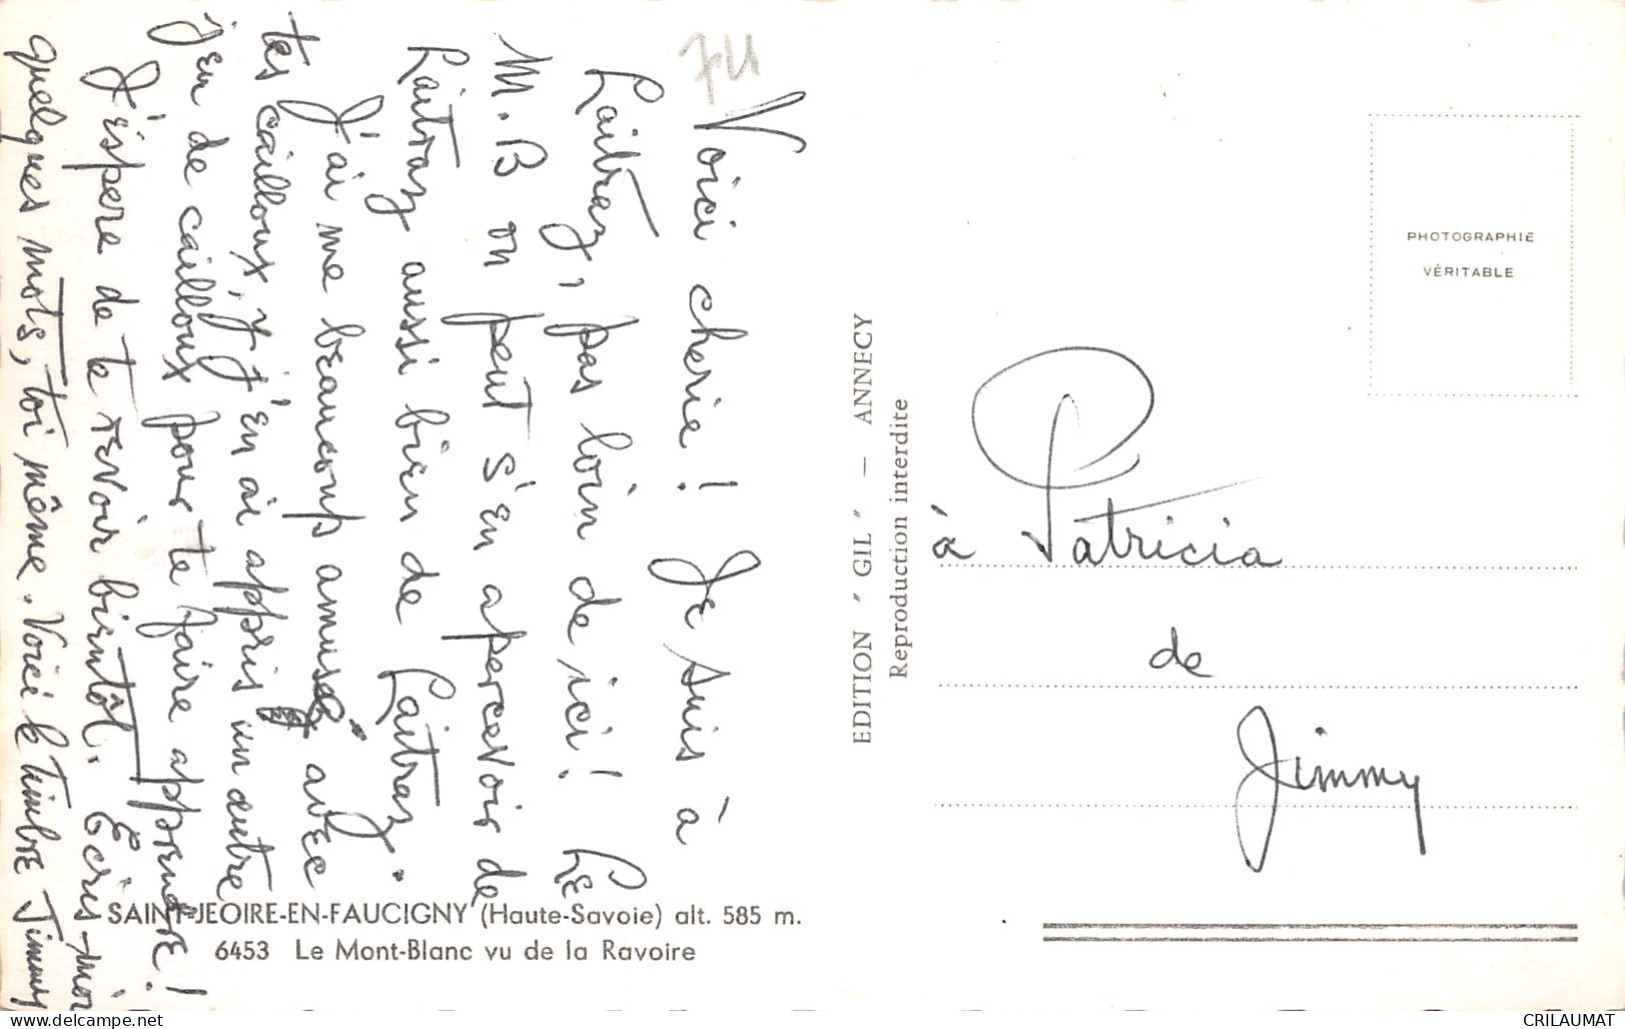 74
Voici cherie ! Je suis à
Laitraz, pas loin de ici ! Le
M. B on peut s'en apercevoir de
Laitraz aussi bien de Laitraz.
J'ai me beaucoup amusé avec
tes cailloux, y j'en ai appris un autre
jeu de cailloux pour te faire apprendre !
J'éspere de te revoir bientôt. Ecris-moi
quelques mots, toi même. Voici le timbre Jimmy
SAINT-JEOIRE-EN-FAUCIGNY (Haute-Savoie) alt. 585 m.
6453 Le Mont-Blanc vu de la Ravoire
EDITION " GIL " — ANNECY
Reproduction interdite
PHOTOGRAPHIE
VÉRITABLE
à Patricia
de
Jimmy
delcampe.net
CRILAUMAT